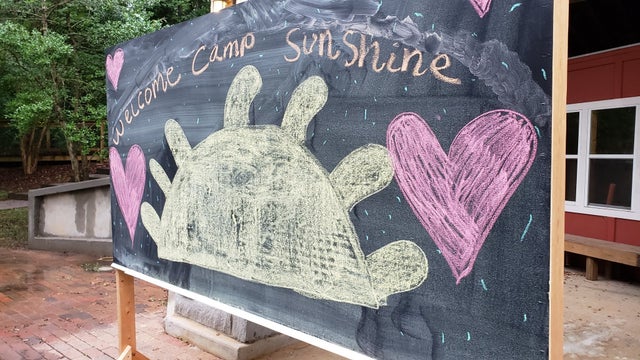 Welcome Camp Sunshine